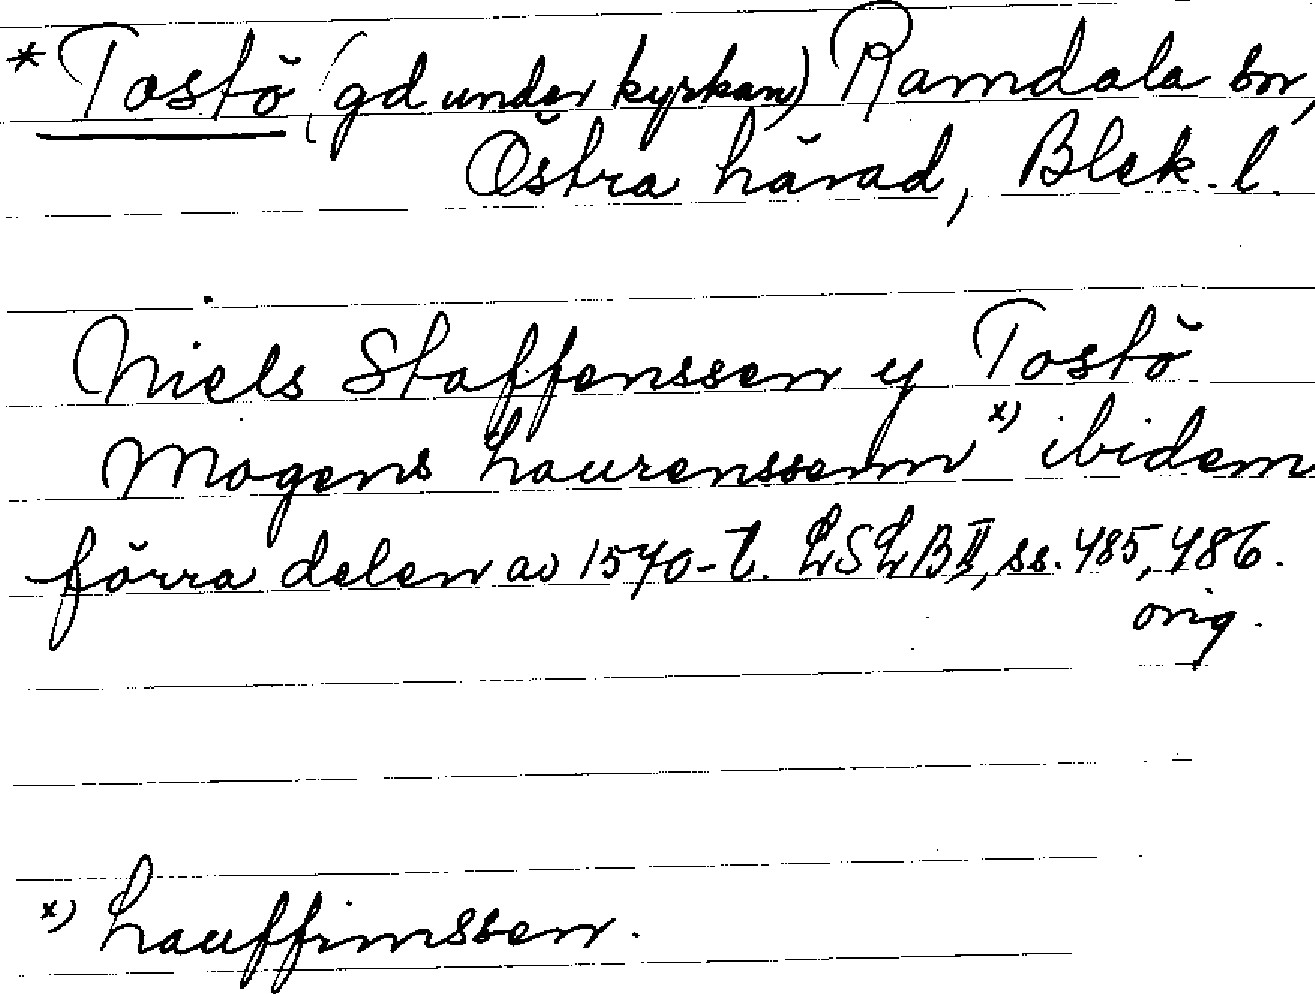 * Tostö (gd under kyrkan) Ramdala sn,
Östra härad, Blek. l.
Niels Staffenssen y Tostö
Mogens Laurenssenn x) ibidem
förra delen av 1570-t. LSLB II, ss. 485, 486.
orig.
x) Lauffrinssen.